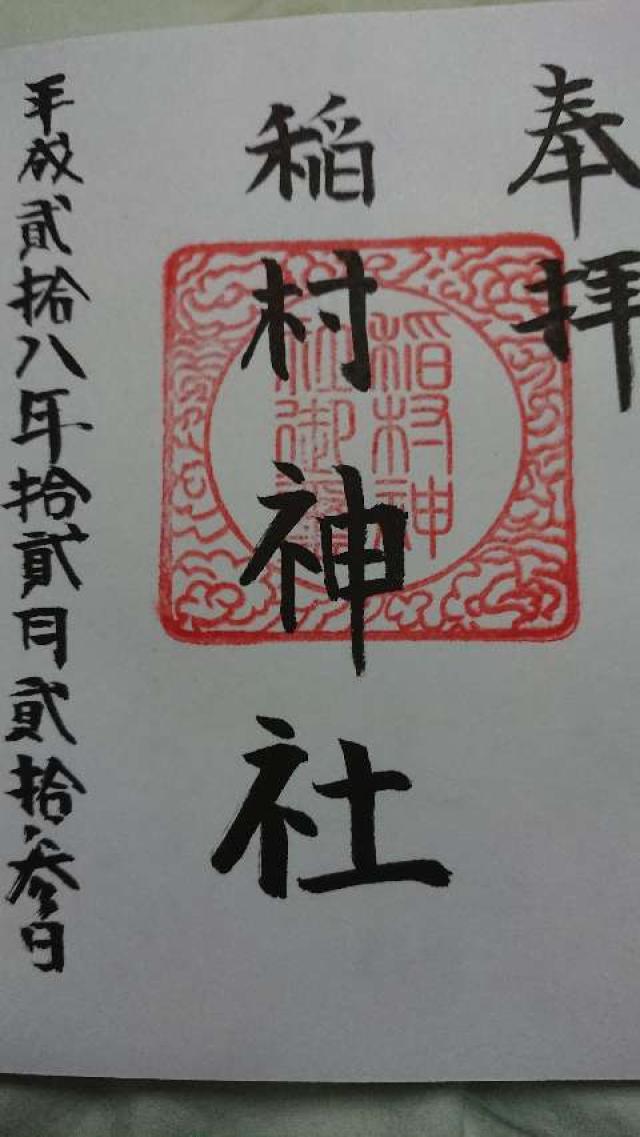 奉拝
稲村神社
稲村神
社御璽
平成貳拾八年拾貳月貳拾参日